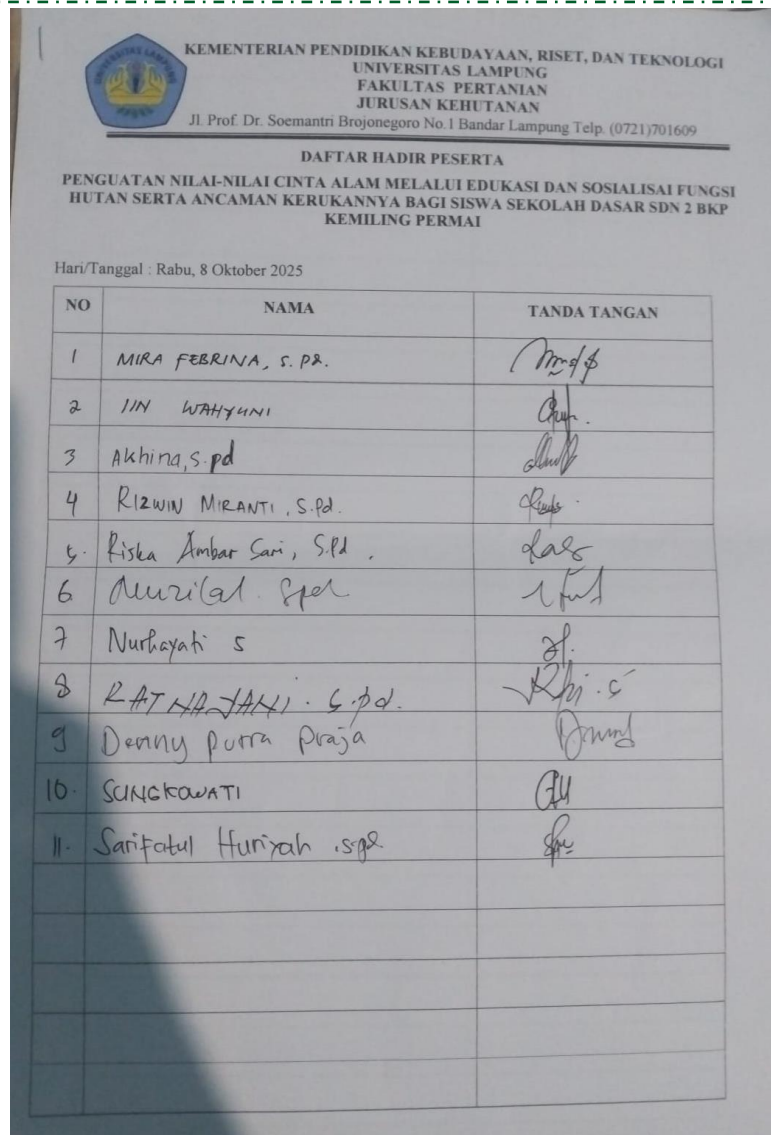 KEMENTERIAN PENDIDIKAN KEBUDAYAAN, RISET, DAN TEKNOLOGI
UNIVERSITAS LAMPUNG
FAKULTAS PERTANIAN
JURUSAN KEHUTANAN
Jl. Prof. Dr. Soemantri Brojonegoro No.1 Bandar Lampung Telp. (0721)701609
DAFTAR HADIR PESERTA
PENGUATAN NILAI-NILAI CINTA ALAM MELALUI EDUKASI DAN SOSIALISAI FUNGSI
HUTAN SERTA ANCAMAN KERUKANNYA BAGI SISWA SEKOLAH DASAR SDN 2 BKP
KEMILING PERMAI
Hari/Tanggal : Rabu, 8 Oktober 2025
NO NAMA TANDA TANGAN
1 MIRA FEBRINA, S.Pd.
2 IIN WAHYUNI
3 Akhina, S.pd
4 RIZWIN MIRANTI, S.Pd.
5. Riska Ambar Sari, S.Pd.
6 Spd
7 Nurhayati S
8 RATNAJANI. S.pd.
9 Denny putra praja
10. SUNGKOWATI
11. Sarifatul Huriyah .spd